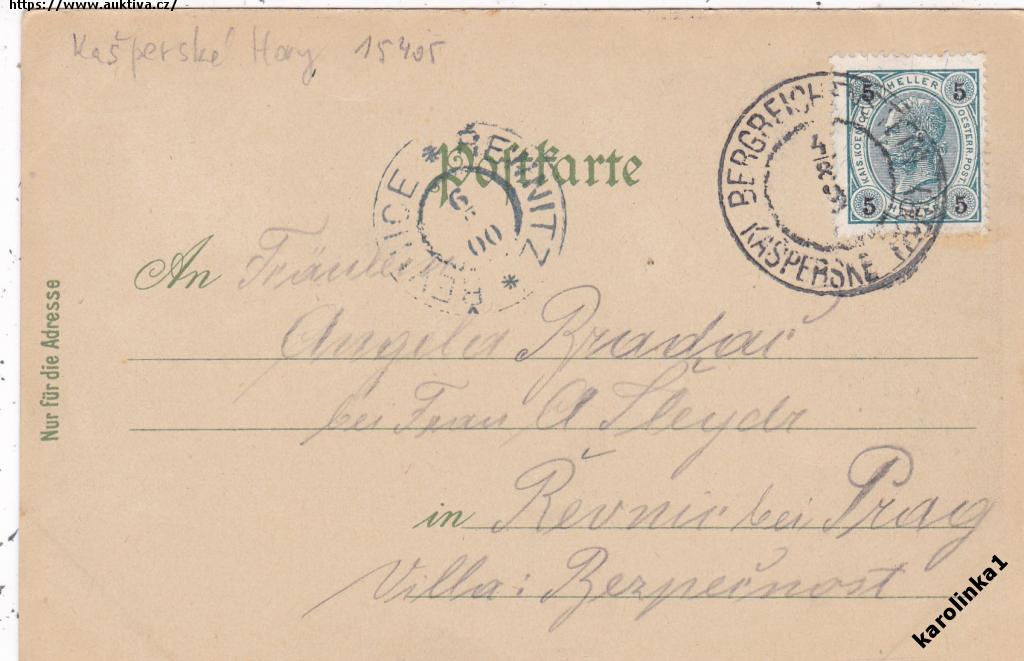 https://www.auktiva.cz/
Kašperské Hory 15405
Postkarte
ŘEVNITZ
ŘEVNICE
6
00
BERGREICHENSTEIN
KAŠPERSKÉ HORY
5 HELLER 5
KAIS. KOENIGL. OESTERR. POST
5 5
An Fräulein
Angela Bradáč
bei Frau A Šleydr
in Řevnic bei Prag
Villa: Bezpečnost
Nur für die Adresse
karolinka1